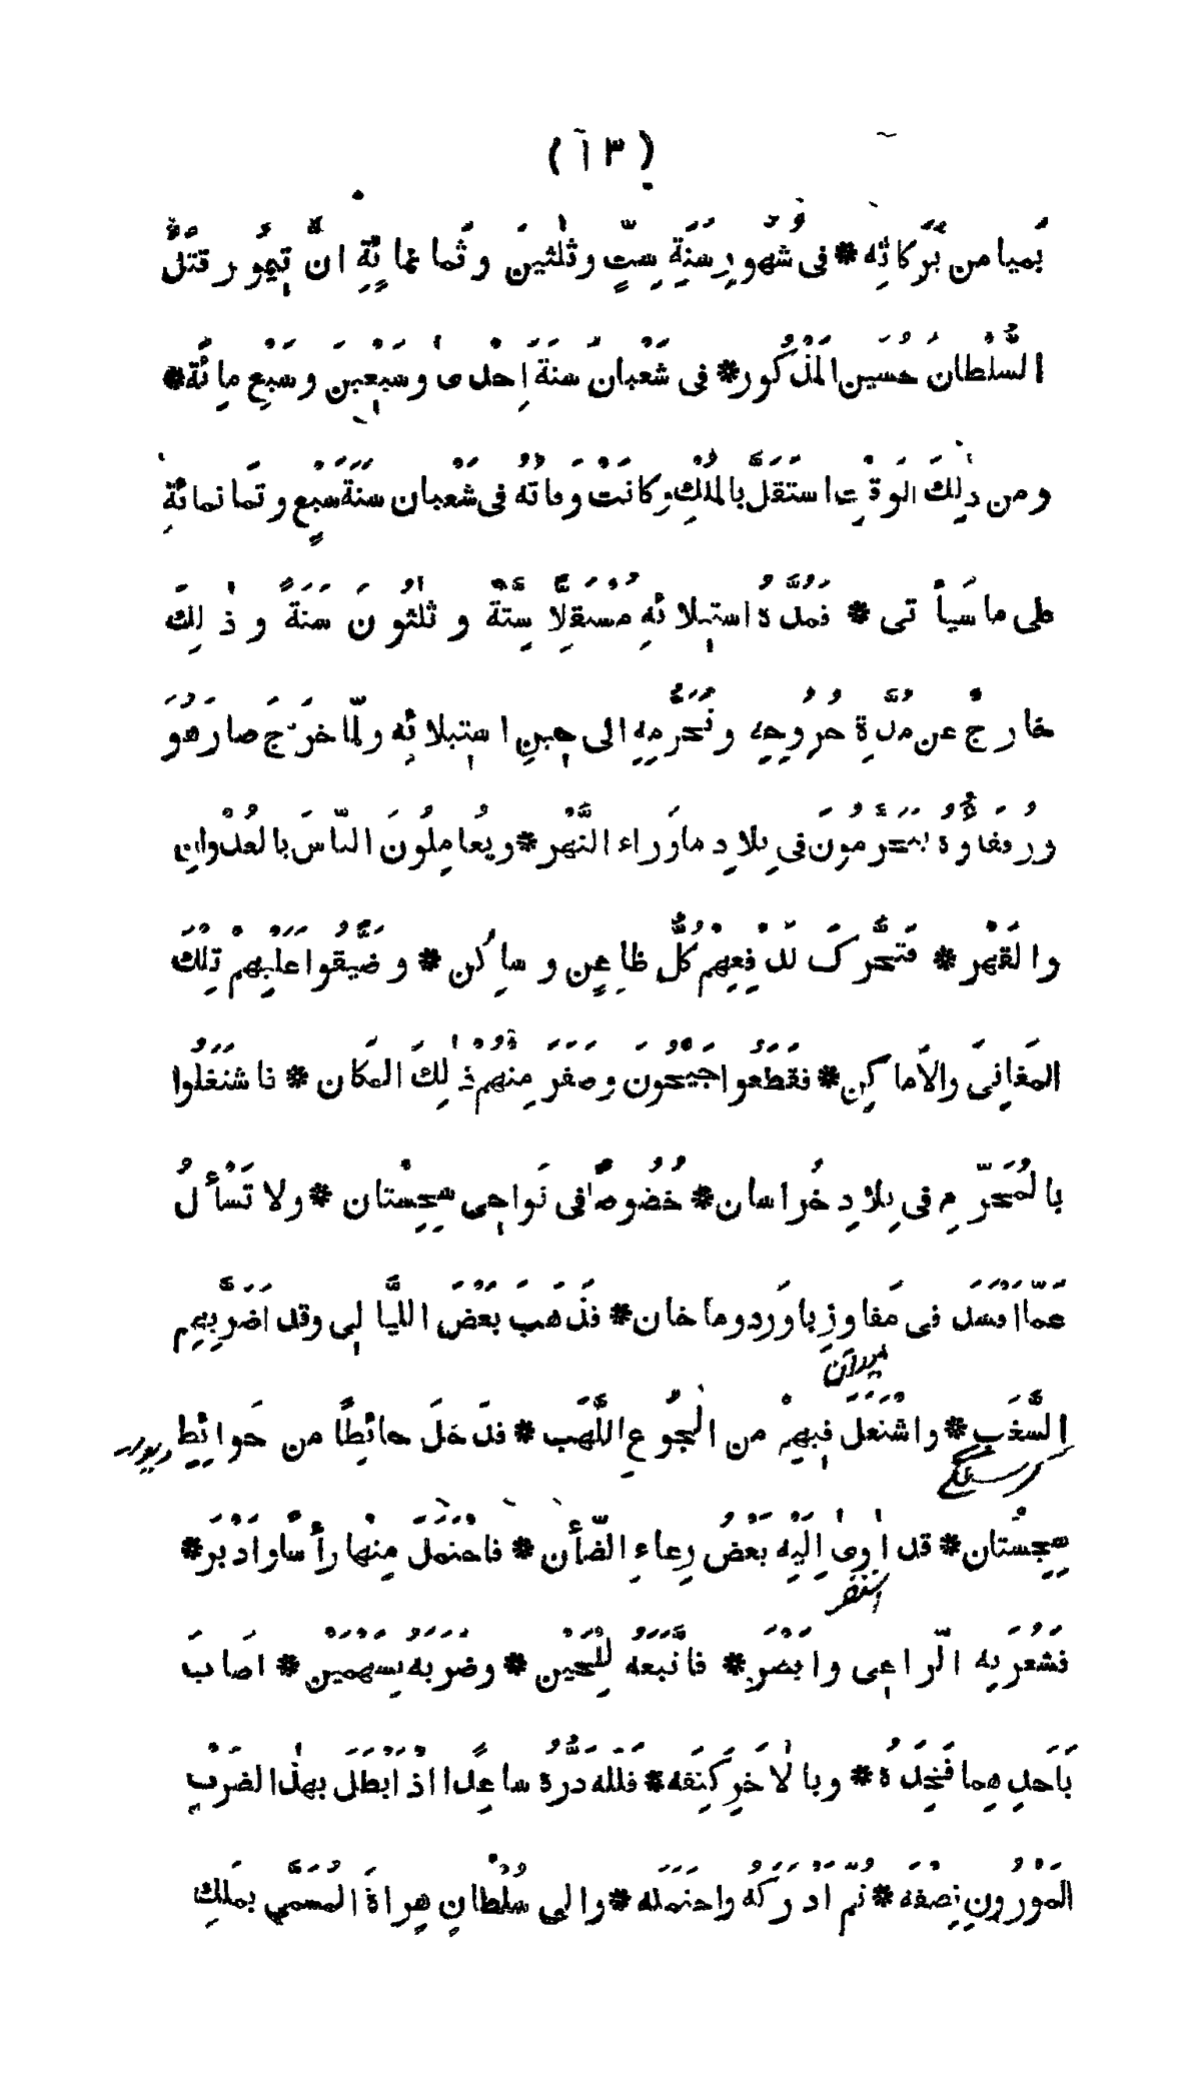 (١٣)
بميا من بركاته * فى شهور سنة ست وثلثين وثما نمائة ان تيمور قتل
السلطان حسين المذكور * فى شعبان سنة احدى وسبعين وسبع مائة *
ومن ذلك الوقت استقل بالملك وكانت وفاته فى شعبان سنة سبع وثمانمائة
على ما سيأتى * فمدة استيلائه مستقلا ستة وثلثون سنة وذلك
خارج عن مدة خروجه وتحرمه الى حين استيلائه ولما خرج صار هو
ورفقاؤه يتحرمون فى بلاد ماوراء النهر * ويعاملون الناس بالعدوان
والقهر * فتحرك لدفعهم كل ظاعن وساكن * وضيقوا عليهم تلك
المغانى والاماكن * فقطعوا جيحون وصفر منهم ذلك المكان * فاشتغلوا
بالتحرم فى بلاد خراسان * خصوصا فى نواحى سجستان * ولا تسأل
عما افسد فى مفاوز باورد وماخان * فذهب بعض الليالى وقد اضر بهم
السغب * واشتعل فيهم من الجوع اللهب * فدخل حائطا من حوائط
سجستان * قد اوى اليه بعض رعاء الضأن * فاحتمل منها رأسا وادبر *
فشعر به الراعى وابصر * فاتبعه للحين * وضربه بسهمين * اصاب
باحدهما فخذه * وبالاخر كتفه * فلله دره ساعدا اذ ابطل بهذا الضرب
الموزون نصفه * ثم ادركه واحتمله * والى سلطان هراة المسمى بملك